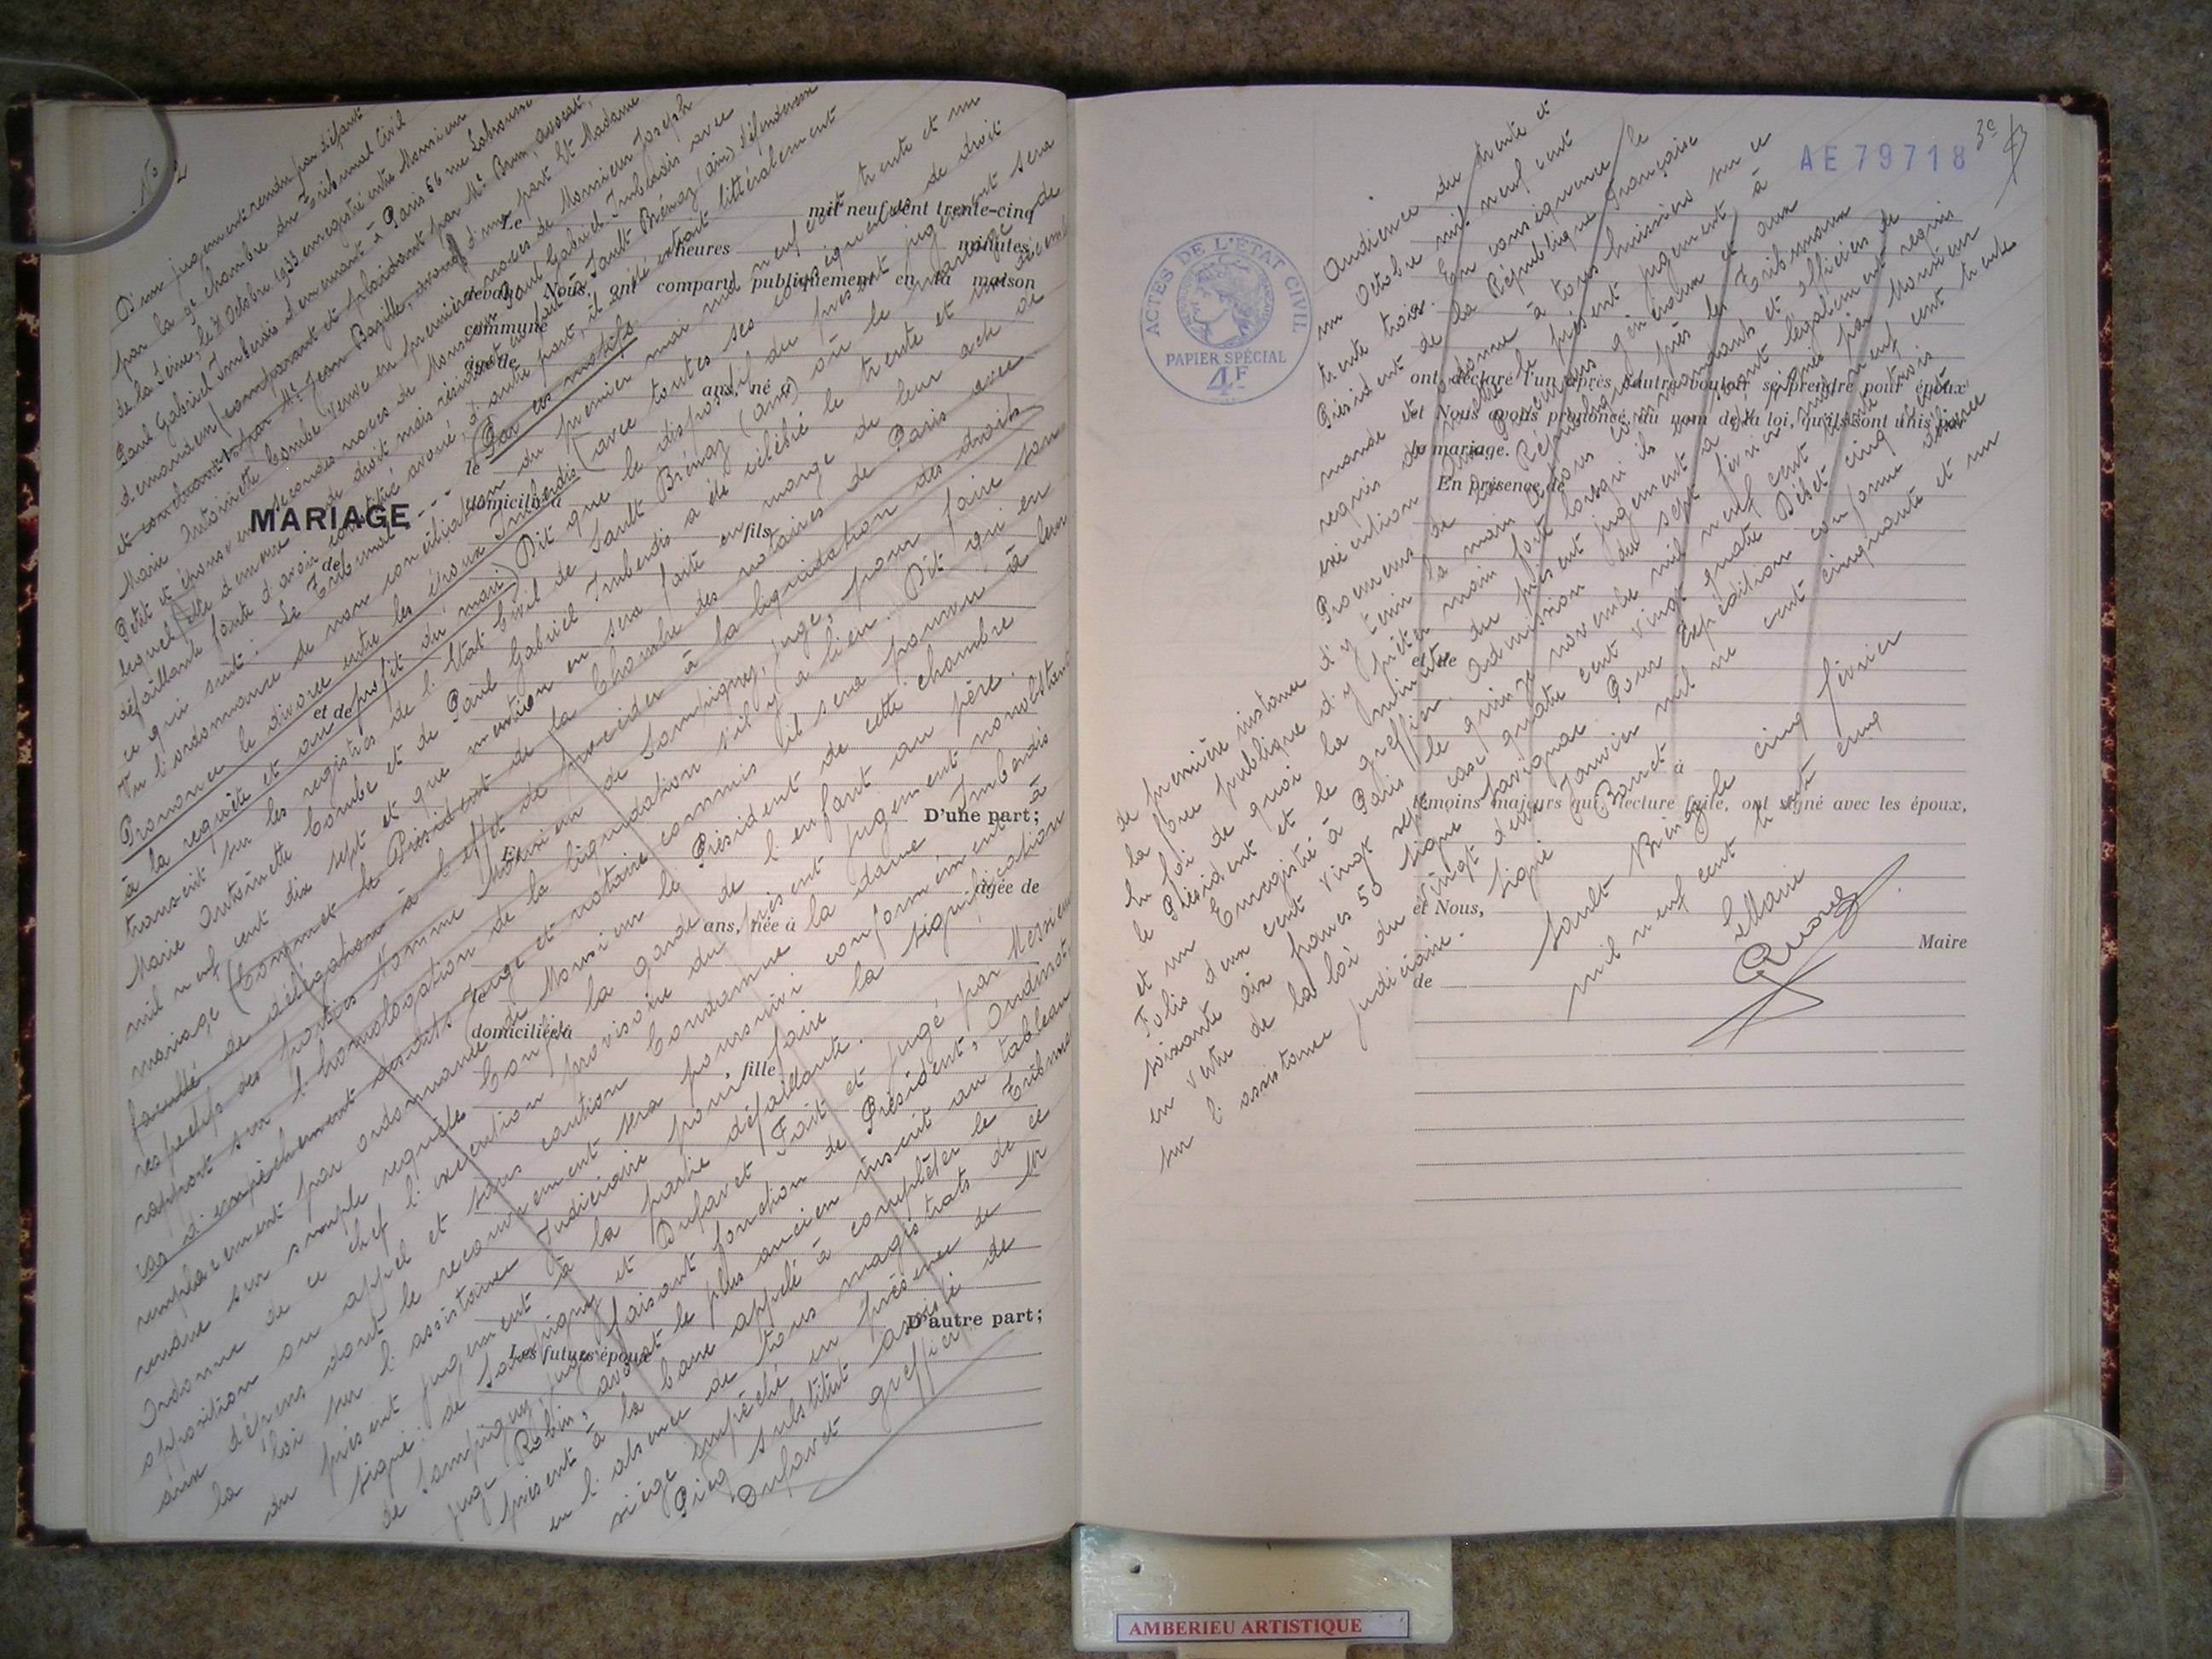 No 2
D'un jugement rendu par défaut
par la 9e chambre du Tribunal Civil
de la Seine, le 31 Octobre 1933 enregistré entre Monsieur
Paul Gabriel Imberdis demeurant à Paris 56 rue Labrousse
demandeur (comparant et plaidant par Me Brun, avocat,
et concluant par Me Jean Bazille, avoué d'une part Et Madame
Marie Antoinette Combe veuve en premières noces de Monsieur Joseph
Petit et épouse en secondes noces de Monsieur Paul Gabriel Imberdis avec
lequel elle demeure de droit mais résidant en fait à Sault Brénaz (ain) défenderesse
défaillante faute d'avoir constitué avoué, d'autre part, il a été extrait littéralement
ce qui suit: Le Tribunal --- Par ces motifs
Vu l'ordonnance de non conciliation du premier mai mil neuf cent trente et un
Prononce le divorce entre les époux Imberdis (avec toutes ses conséquences de droit
à la requête et au profit du mari) Dit que le dispositif du présent jugement sera
transcrit sur les registres de l'Etat Civil de Sault Brénaz (ain) où le mariage de
Marie Antoinette Combe et de Paul Gabriel Imberdis a été célébré le trente et un
mil neuf cent dix sept et que mention en sera faite en marge de leur acte de
mariage (Commet le Président de la Chambre des notaires de Paris avec
faculté de délégation à l'effet de procéder à la liquidation des droits
respectifs des parties Nomme Monsieur de Sampigny, juge, pour faire son
rapport sur l'homologation de la liquidation s'il y a lieu. Dit qu'en
cas d'empêchement desdits juge et notaire commis il sera pourvu à leur
remplacement par ordonnance de Monsieur le Président de cette chambre
rendue sur simple requête Confie la garde de l'enfant au père.
Ordonne de ce chef l'exécution provisoire du présent jugement nonobstant
opposition ou appel et sans caution Condamne la dame Imberdis
aux dépens dont le recouvrement sera poursuivi conformément à
la loi sur l'assistance Judiciaire pour faire la signification
du présent jugement à la partie défaillante.
Signé: de Sampigny et Dufavet Fait et jugé par Messieurs
de Sampigny, juge faisant fonction de Président, Oudinot
juge Robin, avocat le plus ancien inscrit au tableau
présent à la barre appelé à compléter le Tribunal
en l'absence de tous magistrats de ce
siège empêché en présence de Mr
Picq substitut assisté de
Dufavet greffier
MARIAGE
de
et de
Le mil neuf cent trente-cinq
heures minutes,
devant Nous, ont comparu publiquement en la maison
commune
âgé de
ans, né à
le
domicilié à
fils
D'une part;
Et
âgée de
ans, née à
le
domiciliée à
, fille
D'autre part;
Les futurs époux
AE79718
3e
ACTES DE L'ÉTAT CIVIL
PAPIER SPÉCIAL
4F
Audience du trente et
un Octobre mil neuf cent
trente trois. En conséquence le
Président de la République Française
mande et ordonne à tous huissiers sur ce
requis de mettre le présent jugement à
exécution Aux Procureurs généraux et aux
Procureurs de la République près les Tribunaux
de première instance d'y tenir la main A tous commandants et officiers de
la force publique d'y prêter main forte lorsqu'ils en seront légalement requis
En foi de quoi la minute du présent jugement a été signée par Monsieur
le Président et le greffier. Admission du sept février mil neuf cent trente
et un Enregistré à Paris le quinze novembre mil neuf cent trente trois
Folio deux cent vingt sept case quatre cent vingt quatre Débet cinq cent
soixante dix francs 50 Signé Savignac Pour Expédition conforme délivrée
en vertu de la loi du vingt deux Janvier mil cent cinquante et un
sur l'assistance judiciaire. Signé
ont déclaré l'un après l'autre vouloir se prendre pour époux
et Nous avons prononcé au nom de la loi, qu'ils sont unis par
le mariage.
En présence de
et de
témoins majeurs qui, lecture faite, ont signé avec les époux,
et Nous,
Maire
de
à
Sault Brénaz le cinq février
mil neuf cent trente cinq
Le Maire
AMBERIEU ARTISTIQUE